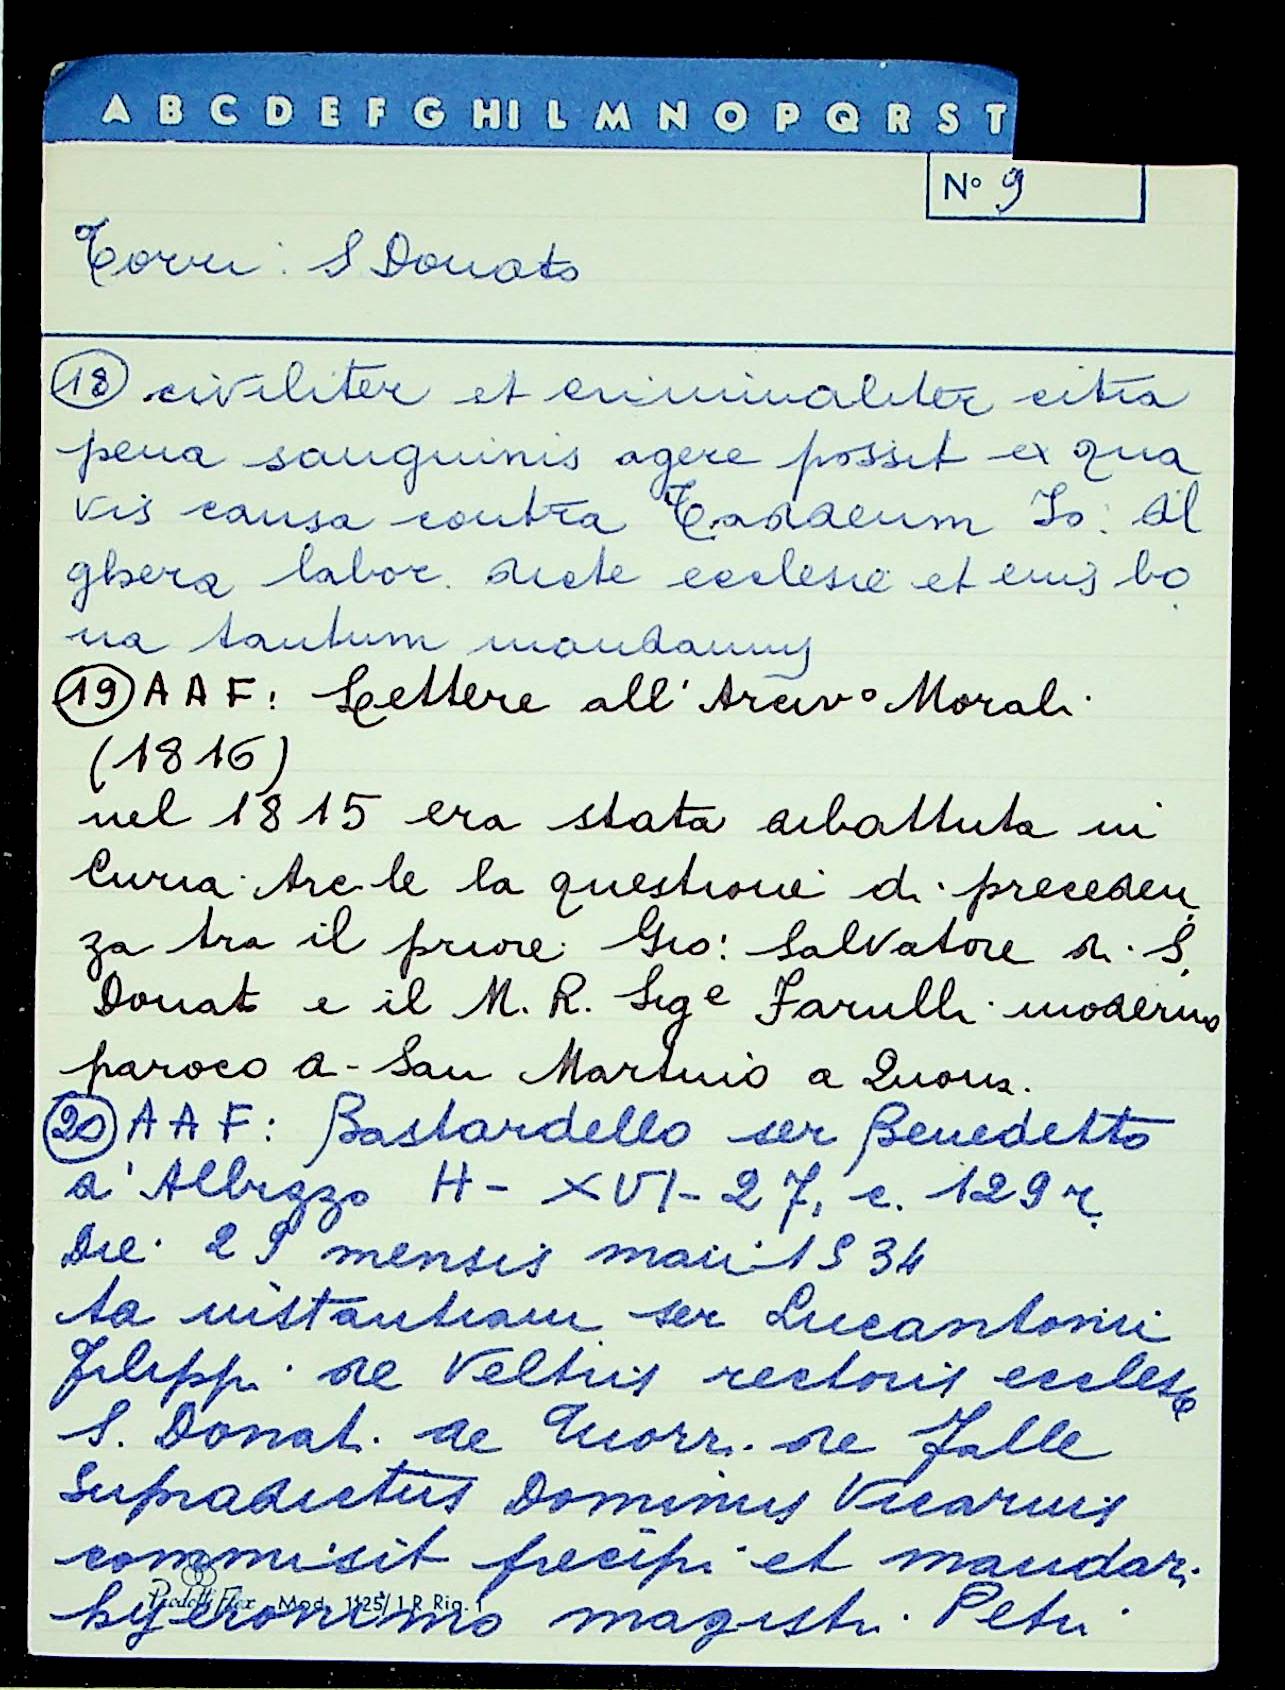 A B C D E F G HI L M N O P Q R S T
N° 9
Torri: S Donato
18 civiliter et criminaliter citra
pena sanguinis agere possit ex qua
vis causa contra Taddeum Jo: Al
ghera labor. dicte ecclesie et eius bo
na tantum mandamus
19 AAF: Lettere all'Arciv° Morali
(1816)
nel 1815 era stata dibattuta in
Curia Arc-le la questione di preceden
za tra il priore Gio: Salvatore di S.
Donato e il M. R. Sige Farulli moderno
paroco a San Martino a Quona.
20 AAF: Bastardello ser Benedetto
d'Albizzo H-XVI-27, c. 129 r.
Die 29 mensis maii 1534
ta instantiam ser Lucantonii
Filippi de Veltriis rectoris ecclesie
S. Donati de Turri de Valle
Supradictus Dominus Vicarius
commisit precipi et mandari
hyeronimo magistri Petri
Prodotti Flex Mod. 1125/1 R Rig. 1